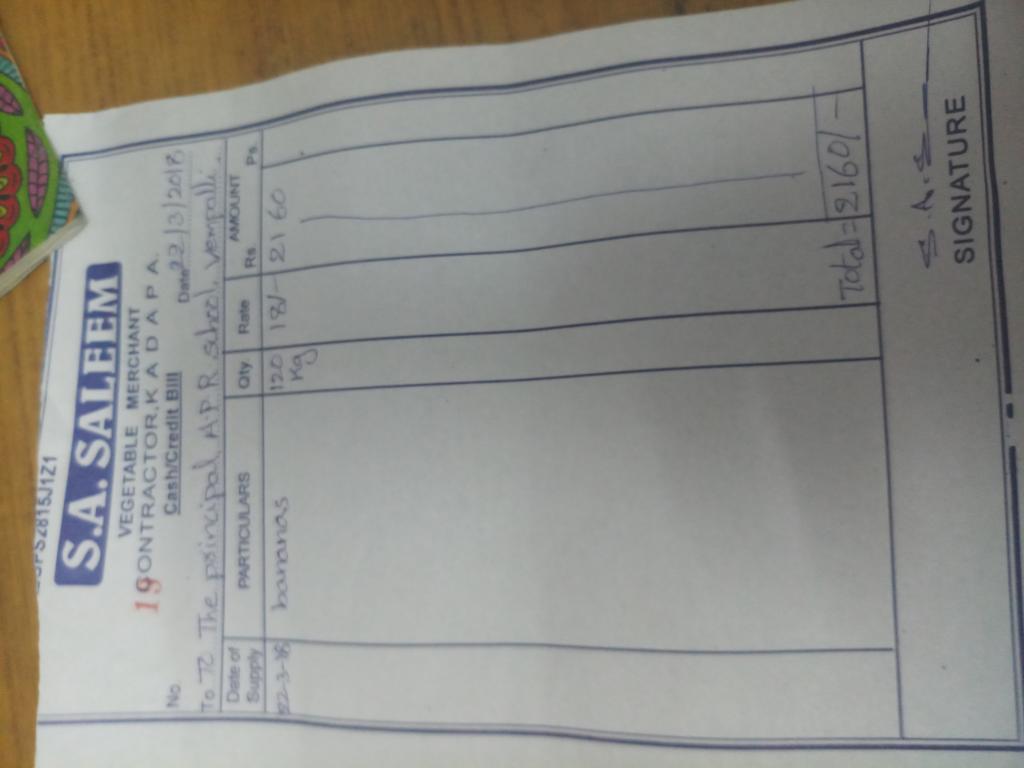 S.A. SALEEM
VEGETABLE MERCHANT
CONTRACTOR, K A D A P A.
19
Cash/Credit Bill
No. Date 22/3/2018
To The principal, A.P.R school, vempalli.
Date of Supply PARTICULARS Qty Rate AMOUNT Rs. Ps.
22-3-18 bananas 120 Kg 18/- 21 60
Total = 2160/-
S.A.S
SIGNATURE